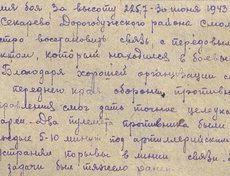 мя боя за высоту 225,7 - 30 июня 1943
Секарево Дорогобужского района Смол
стро восстановить связь, с передовым
ктом, который находился в боевых
Благодаря хорошей организации с
переднего края обороны противни
вления смог дать точное целеука
реи. Два пулемета противника были
ение 5-10 минут под артиллерийским
устранял порывы в линии связи. В
задачи был тяжело ранен.